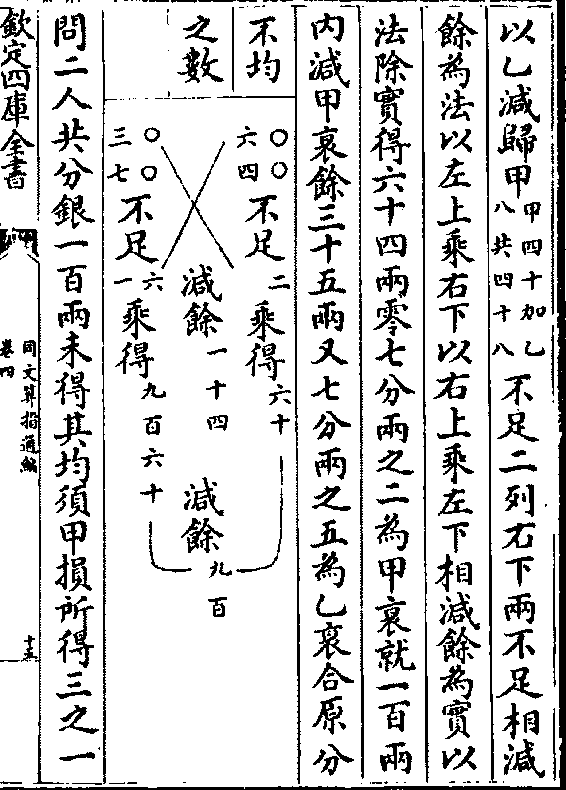 以乙減歸甲甲四十加乙八共四十八不足二列右下兩不足相減
餘為法以左上乘右下以右上乘左下相減餘為實以
法除實得六十四兩零七分兩之二為甲裒就一百兩
内減甲裒餘三十五兩又七分兩之五為乙裒合原分
不均
之數
〇〇
六四
不足二
乘得六十
減餘一十四
減餘九百
〇〇
三七
不足一六
乘得九百六十
問二人共分銀一百兩未得其均須甲損所得三之一
欽定四庫全書
同文算指通編
卷四